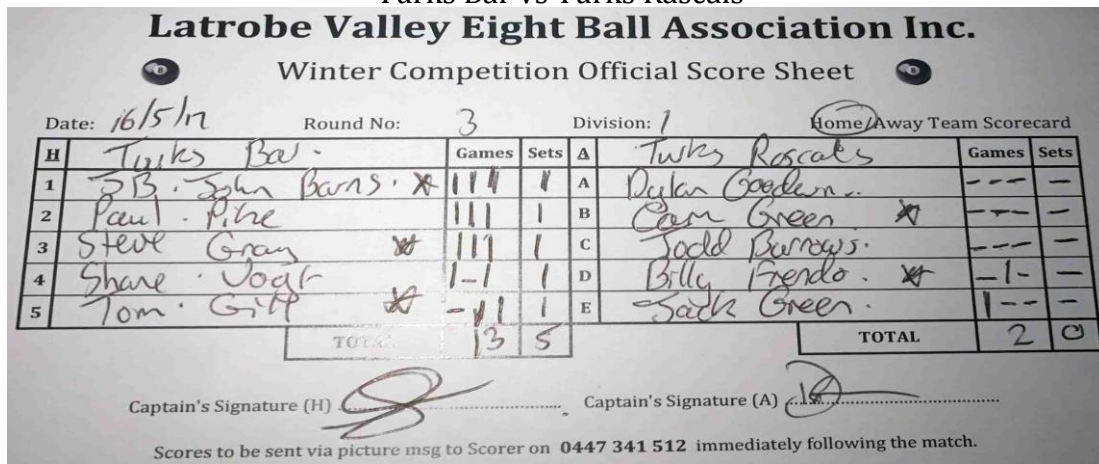 Latrobe Valley Eight Ball Association Inc.
Winter Competition Official Score Sheet
Date: 16/5/12 Round No: 3 Division: 1 Home/Away Team Scorecard
H Turks Bar. Games Sets A Turks Rascals Games Sets
1 JB. John Barns. III I A Dylan --- -
2 Paul. Pike III I B Cam Green --- -
3 Steve Gray III I C Todd Burrows. --- -
4 Shane. Vogt I-I I D Billy Frendo. -I- -
5 Tom. Gill -II I E Jack Green. I-- -
TOTAL 13 5 TOTAL 2 0
Captain's Signature (H) Captain's Signature (A)
Scores to be sent via picture msg to Scorer on 0447 341 512 immediately following the match.